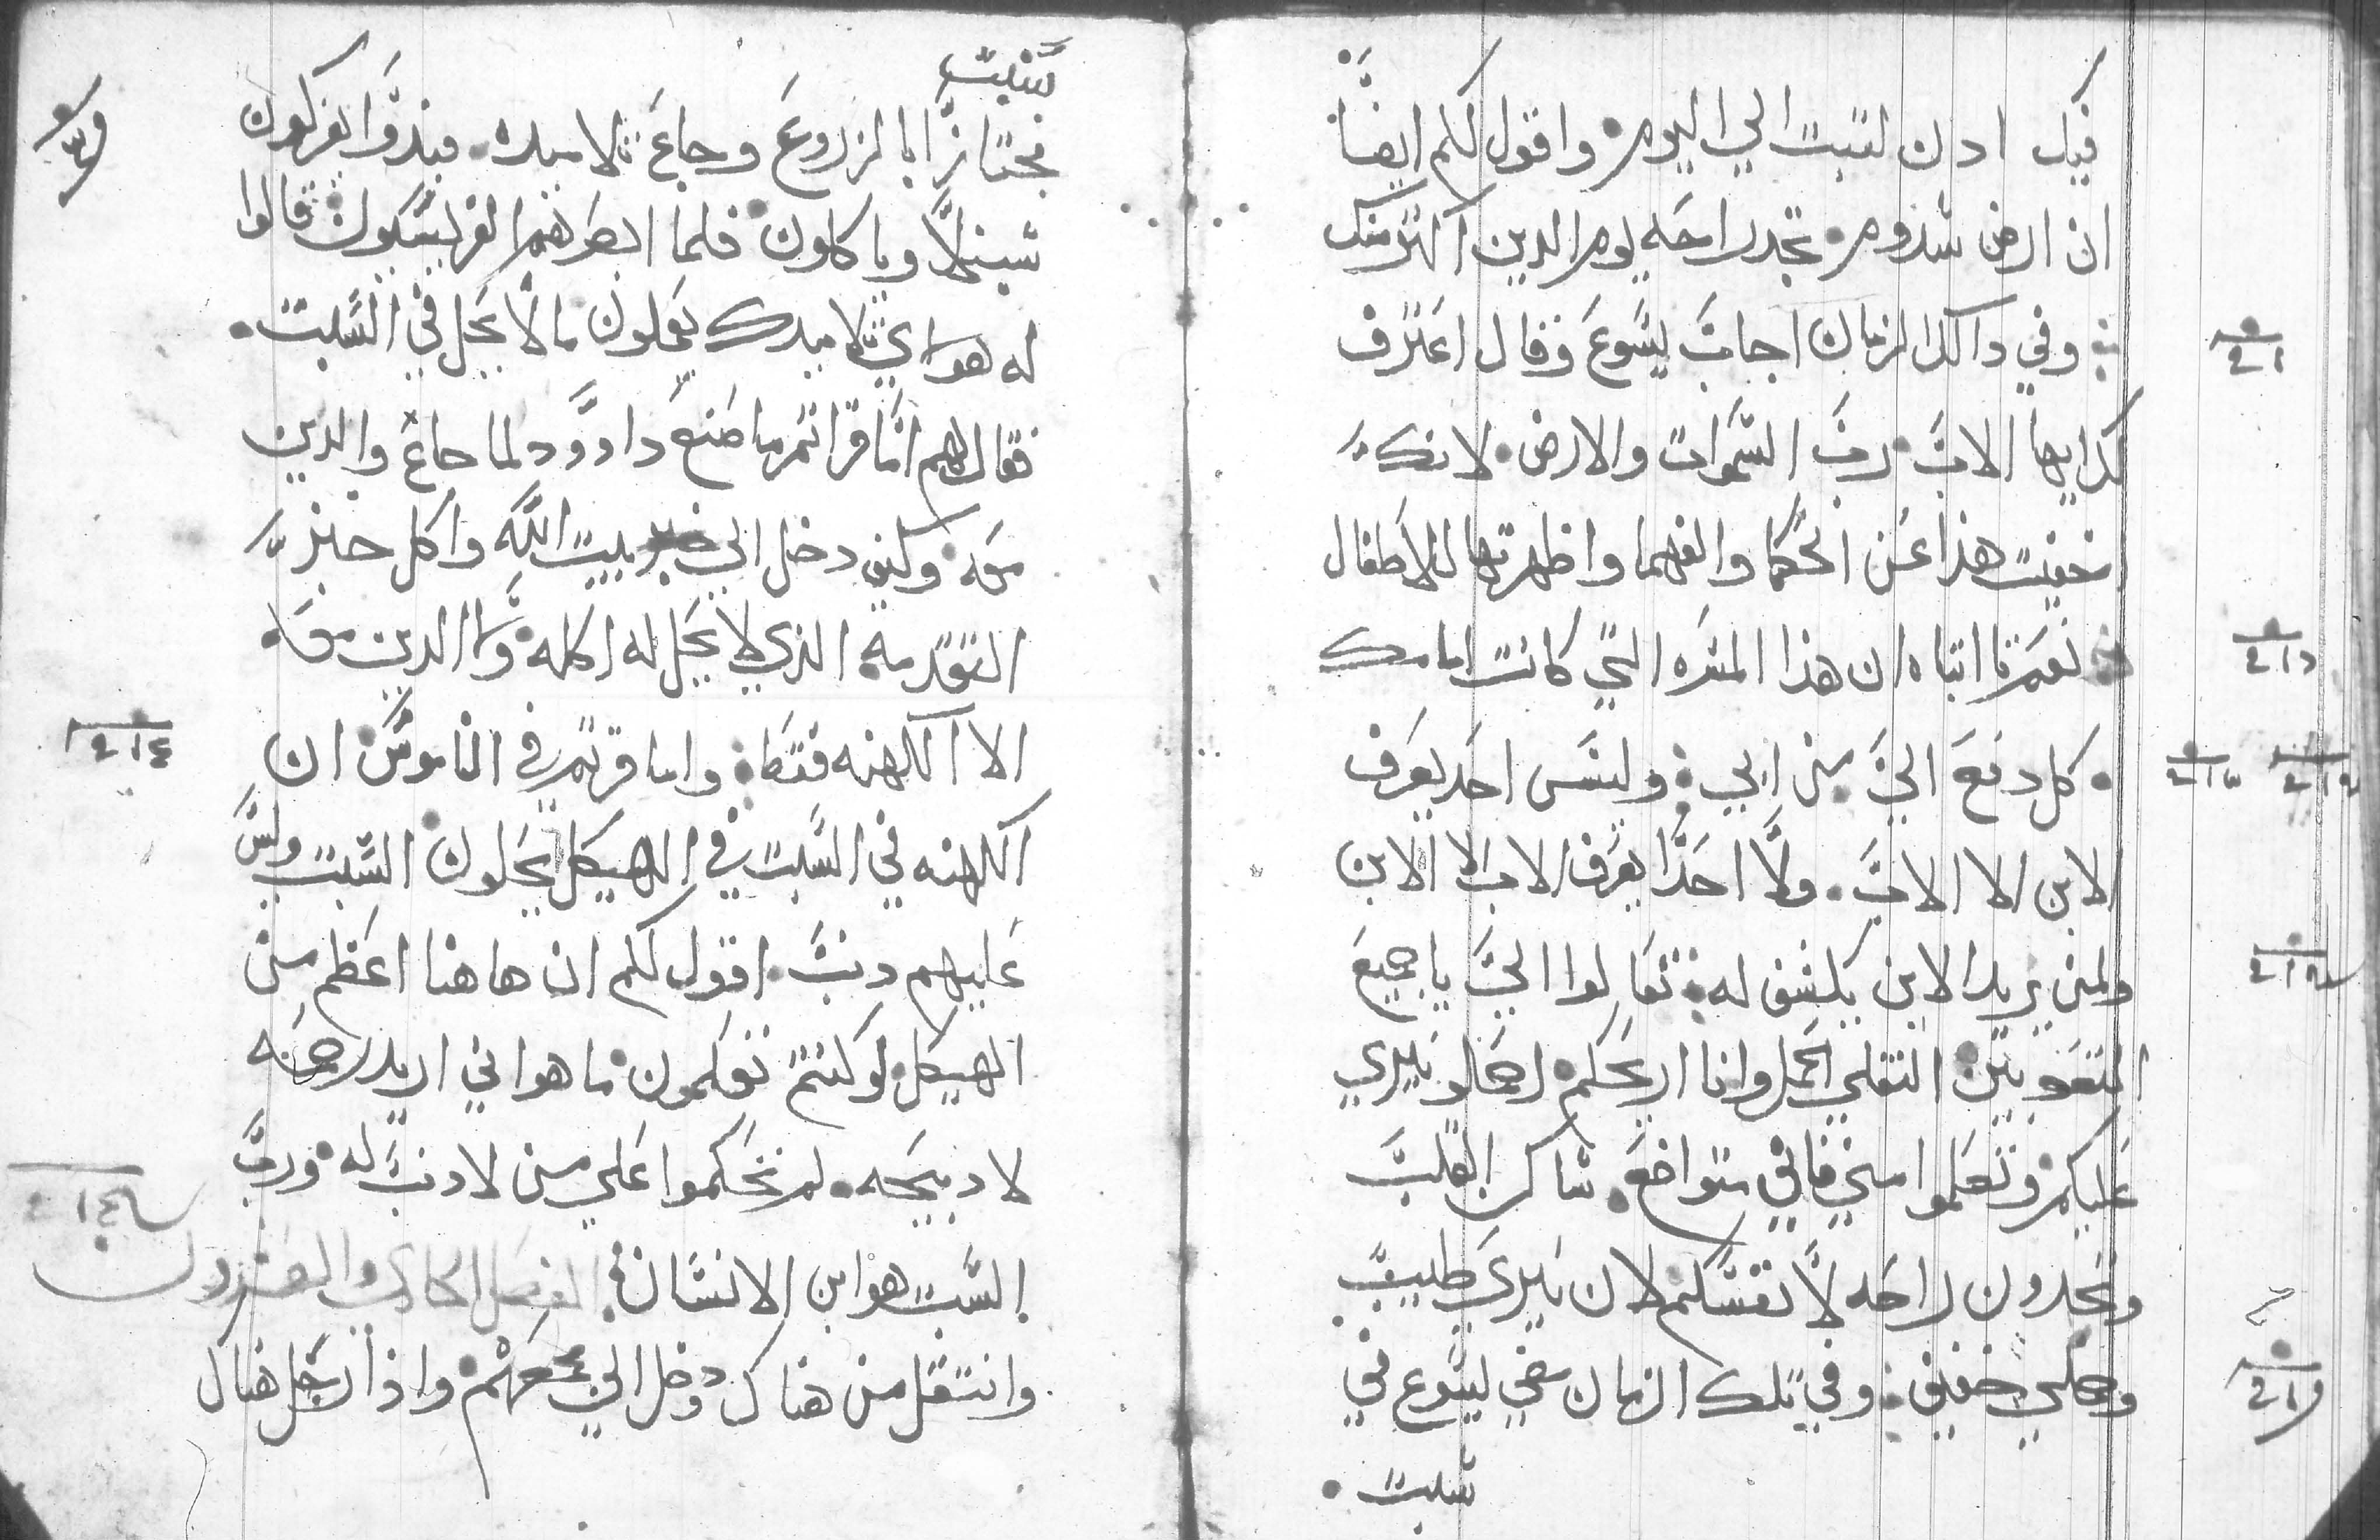 فيك ادن لتبت الي اليوم واقول لكم ايضاً
ان ارض سدوم تجد راحه يوم الدين اكثر منك
وفي داكد الزمان اجاب يسوع وقال اعترف
لك ايها الاب رب السموات والارض لانك
اخفيت هذا عن الحكما والفهما واظهرتها للاطفال
نعم يا ابتاه ان هذا المسره التي كانت امامك
كل دفع الي من ابي وليس احد يعرف
الابن الا الاب ولا احدًا يعرف الاب الا الابن
ولمن يريد الابن يكشف له تعالوا الي يا جميع
المتعوبين الثقلي الحمل وانا اريحكم احملو نيري
عليكم وتعلموا مني فاني متواضع ساكن القلب
وتجدون راحه لانفسكم لان نيري طيب
وحملي خفيف وفي تلك الزمان مضي يسوع في
سبت
سبت
مجتازًا بالزروع وجاع تلاميده فبدوا يفركون
سنبلاً وياكلون فلما ابصرهم الفريسيون قالوا
له هوداي تلاميدك يعملون ما لا يحل في السبت
فقال لهم اما قراتم ما صنع داوود لما جاع والدين
معه وكيف دخل الي بيت الله واكل خبز
التقدمه الذي لا يحل له اكله ولا الدين معه
الا الكهنه فقط واما قريتم في الناموس ان
الكهنه في السبت في الهيكل يحلون السبت وليس
عليهم دنب اقول لكم ان هاهنا اعظم من
الهيكل لو كنتم تعلمون ما هو اني اريد رحمه
لا دبيحه لم تحكموا علي من لا دنب له ورب
السبت هو ابن الانسان الفصل الحادي والعشرون
وانتقل من هناك ودخل الي مجمعهم واذا رجل هناك